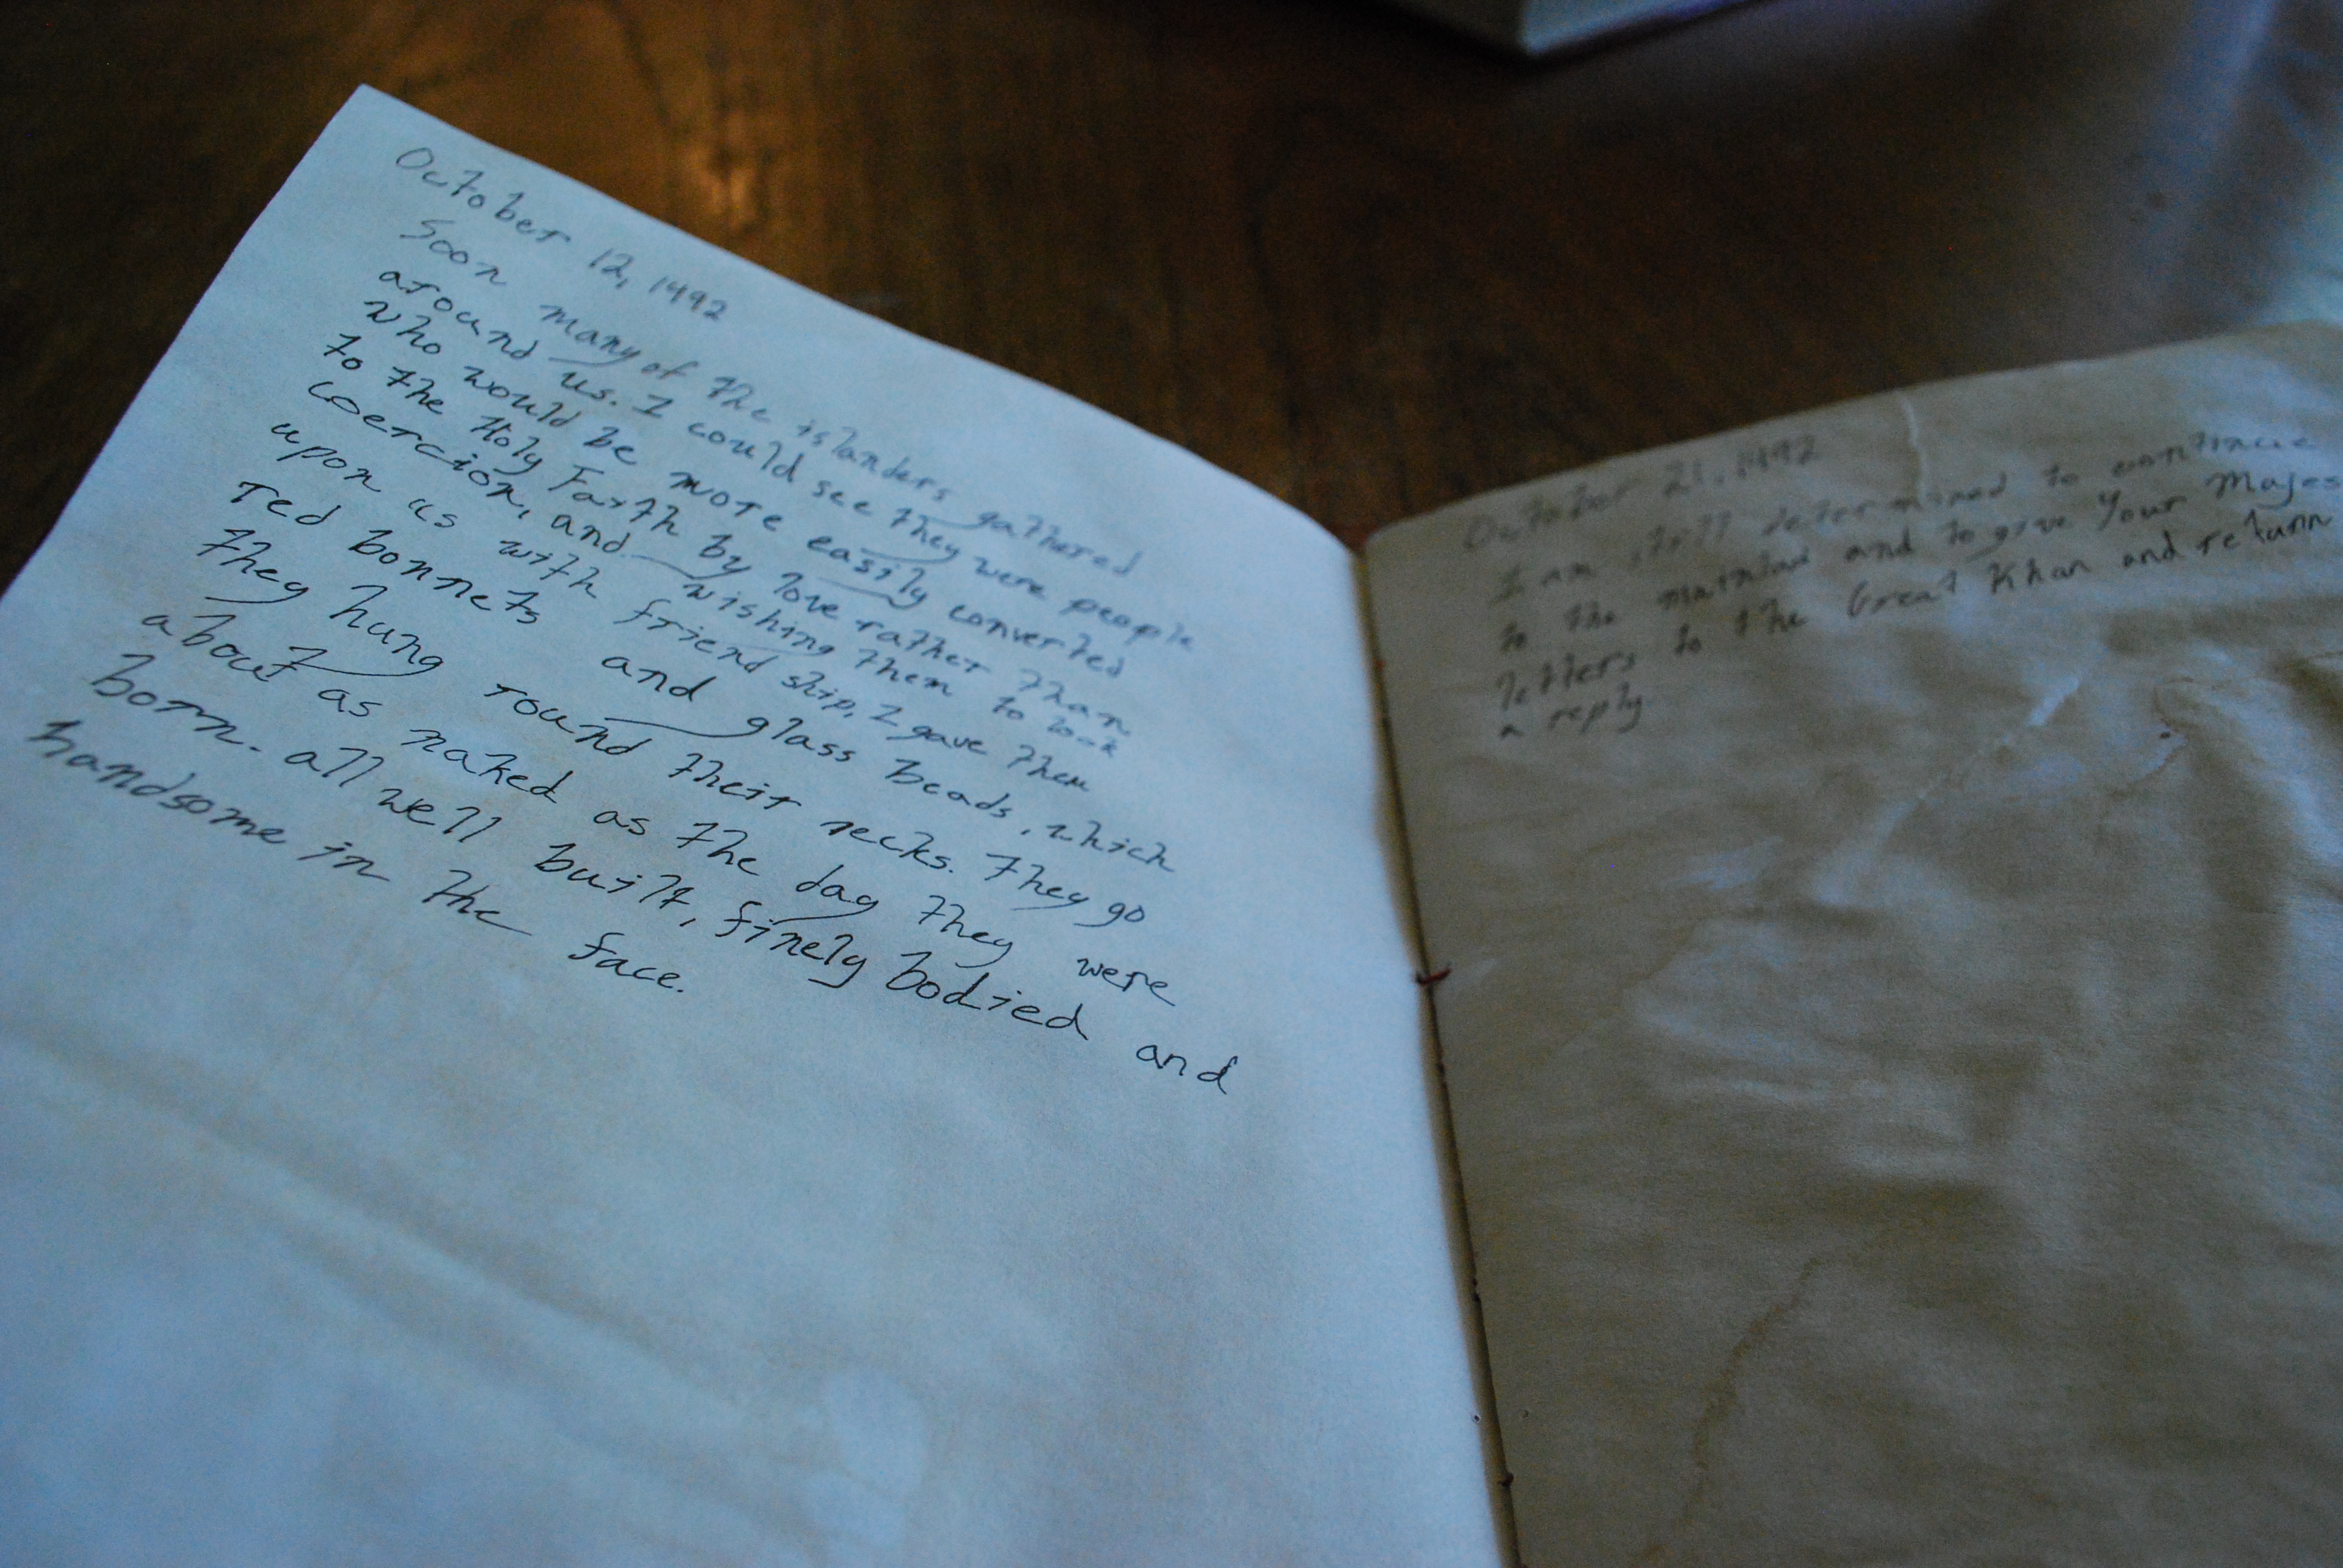 October 12, 1492
Soon many of the islanders gathered
around us. I could see they were people
who would be more easily converted
to the Holy Faith by love rather than
coercion, and wishing them to look
upon us with friendship, I gave them
red bonnets and glass beads, which
they hung round their necks. They go
about as naked as the day they were
born. all well built, finely bodied and
handsome in the face.
October 21, 1492
I am still determined to continue
to the mainland and to give Your Majes
letters to the Great Khan and return
a reply.